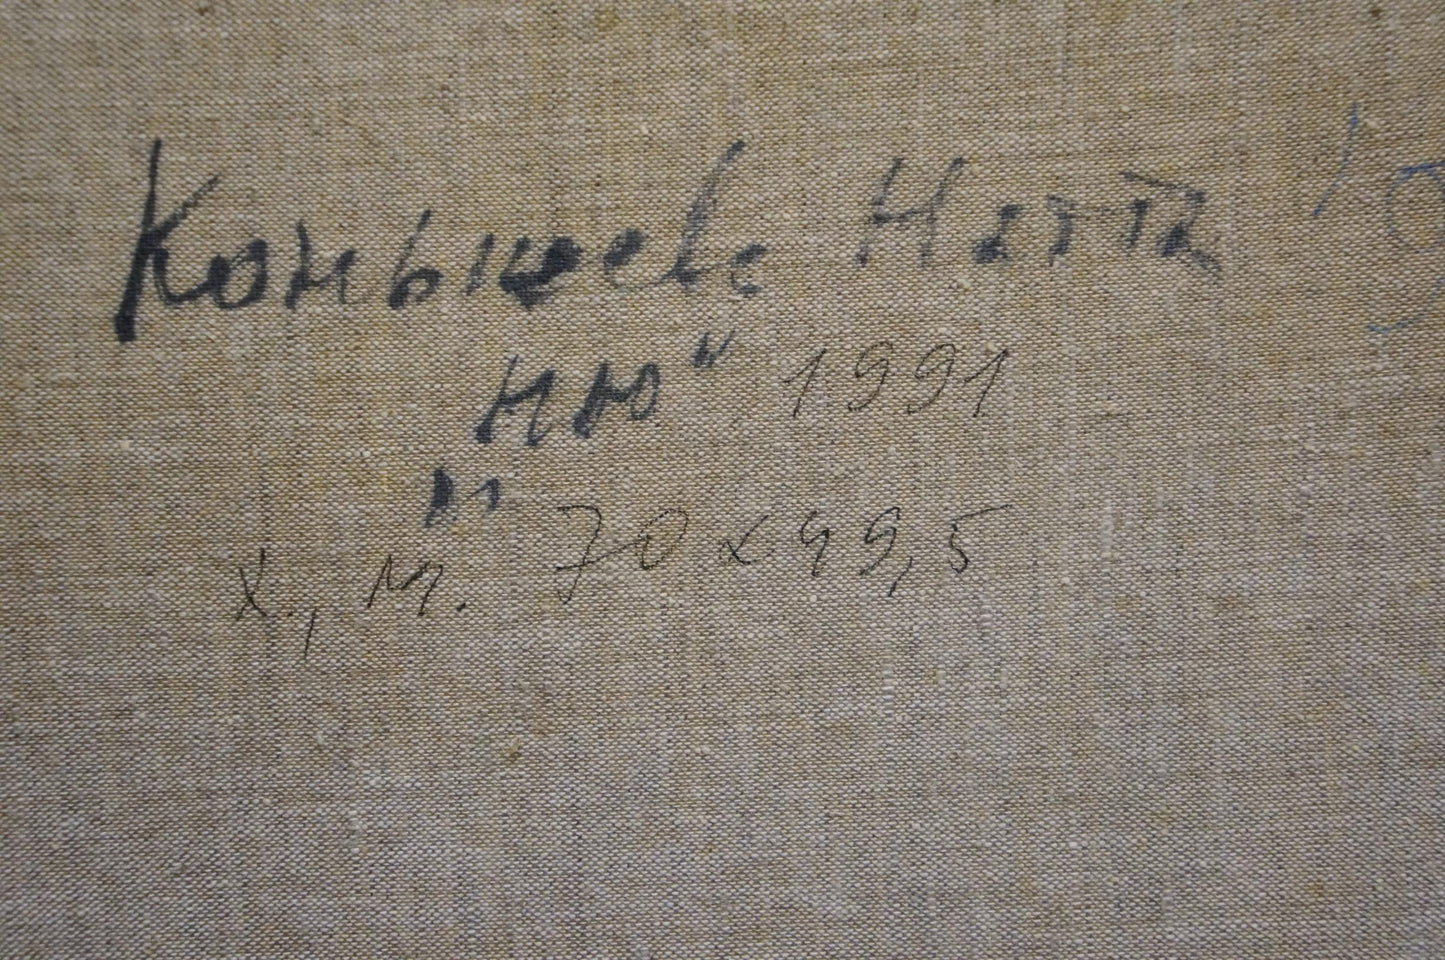 Коньшева Натта
„НЮ" 1991
х., м. 70 х 49,5